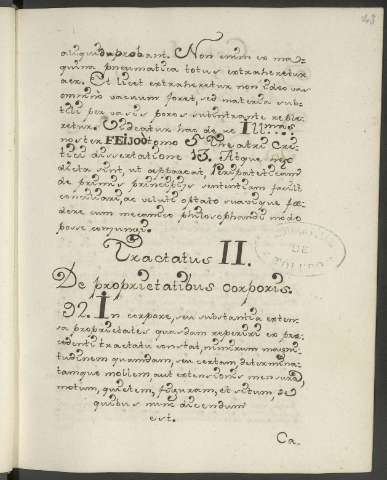 43
aliquid probant. Non enim ex ma-
quina pneumatica totus extraheretur
aer. Et licet extraheretur non ideo vas
omnino vacuum foret, sed materia sub-
tili per vasis poros subintrante reple-
retur. Videatur hac de re Illmus
noster FEIJOÒ tomo 5 Theatri Cri-
tici dissertatione 13. Atque hęc
dicta sint, ut appareat, Peripateticam
de primis principijs sententiam facile
conciliari, ac veluti optato suavique fœ-
dere cum mecanico philosophandi modo
posse conjungi.
Tractatus II.
De proprietatibus corporis.
92. In corpore, seu substantia exten-
sa proprietates quasdam reperiri ex prę-
cedenti tractatu constat, nimirum magni-
tudinem quamdam, seu certam determina-
tamque molem, aut extensionis mensuram,
motum, quietem, figuram, et situm, de
quibus nunc dicendum
est.
Ca-
DE
TOLEDO